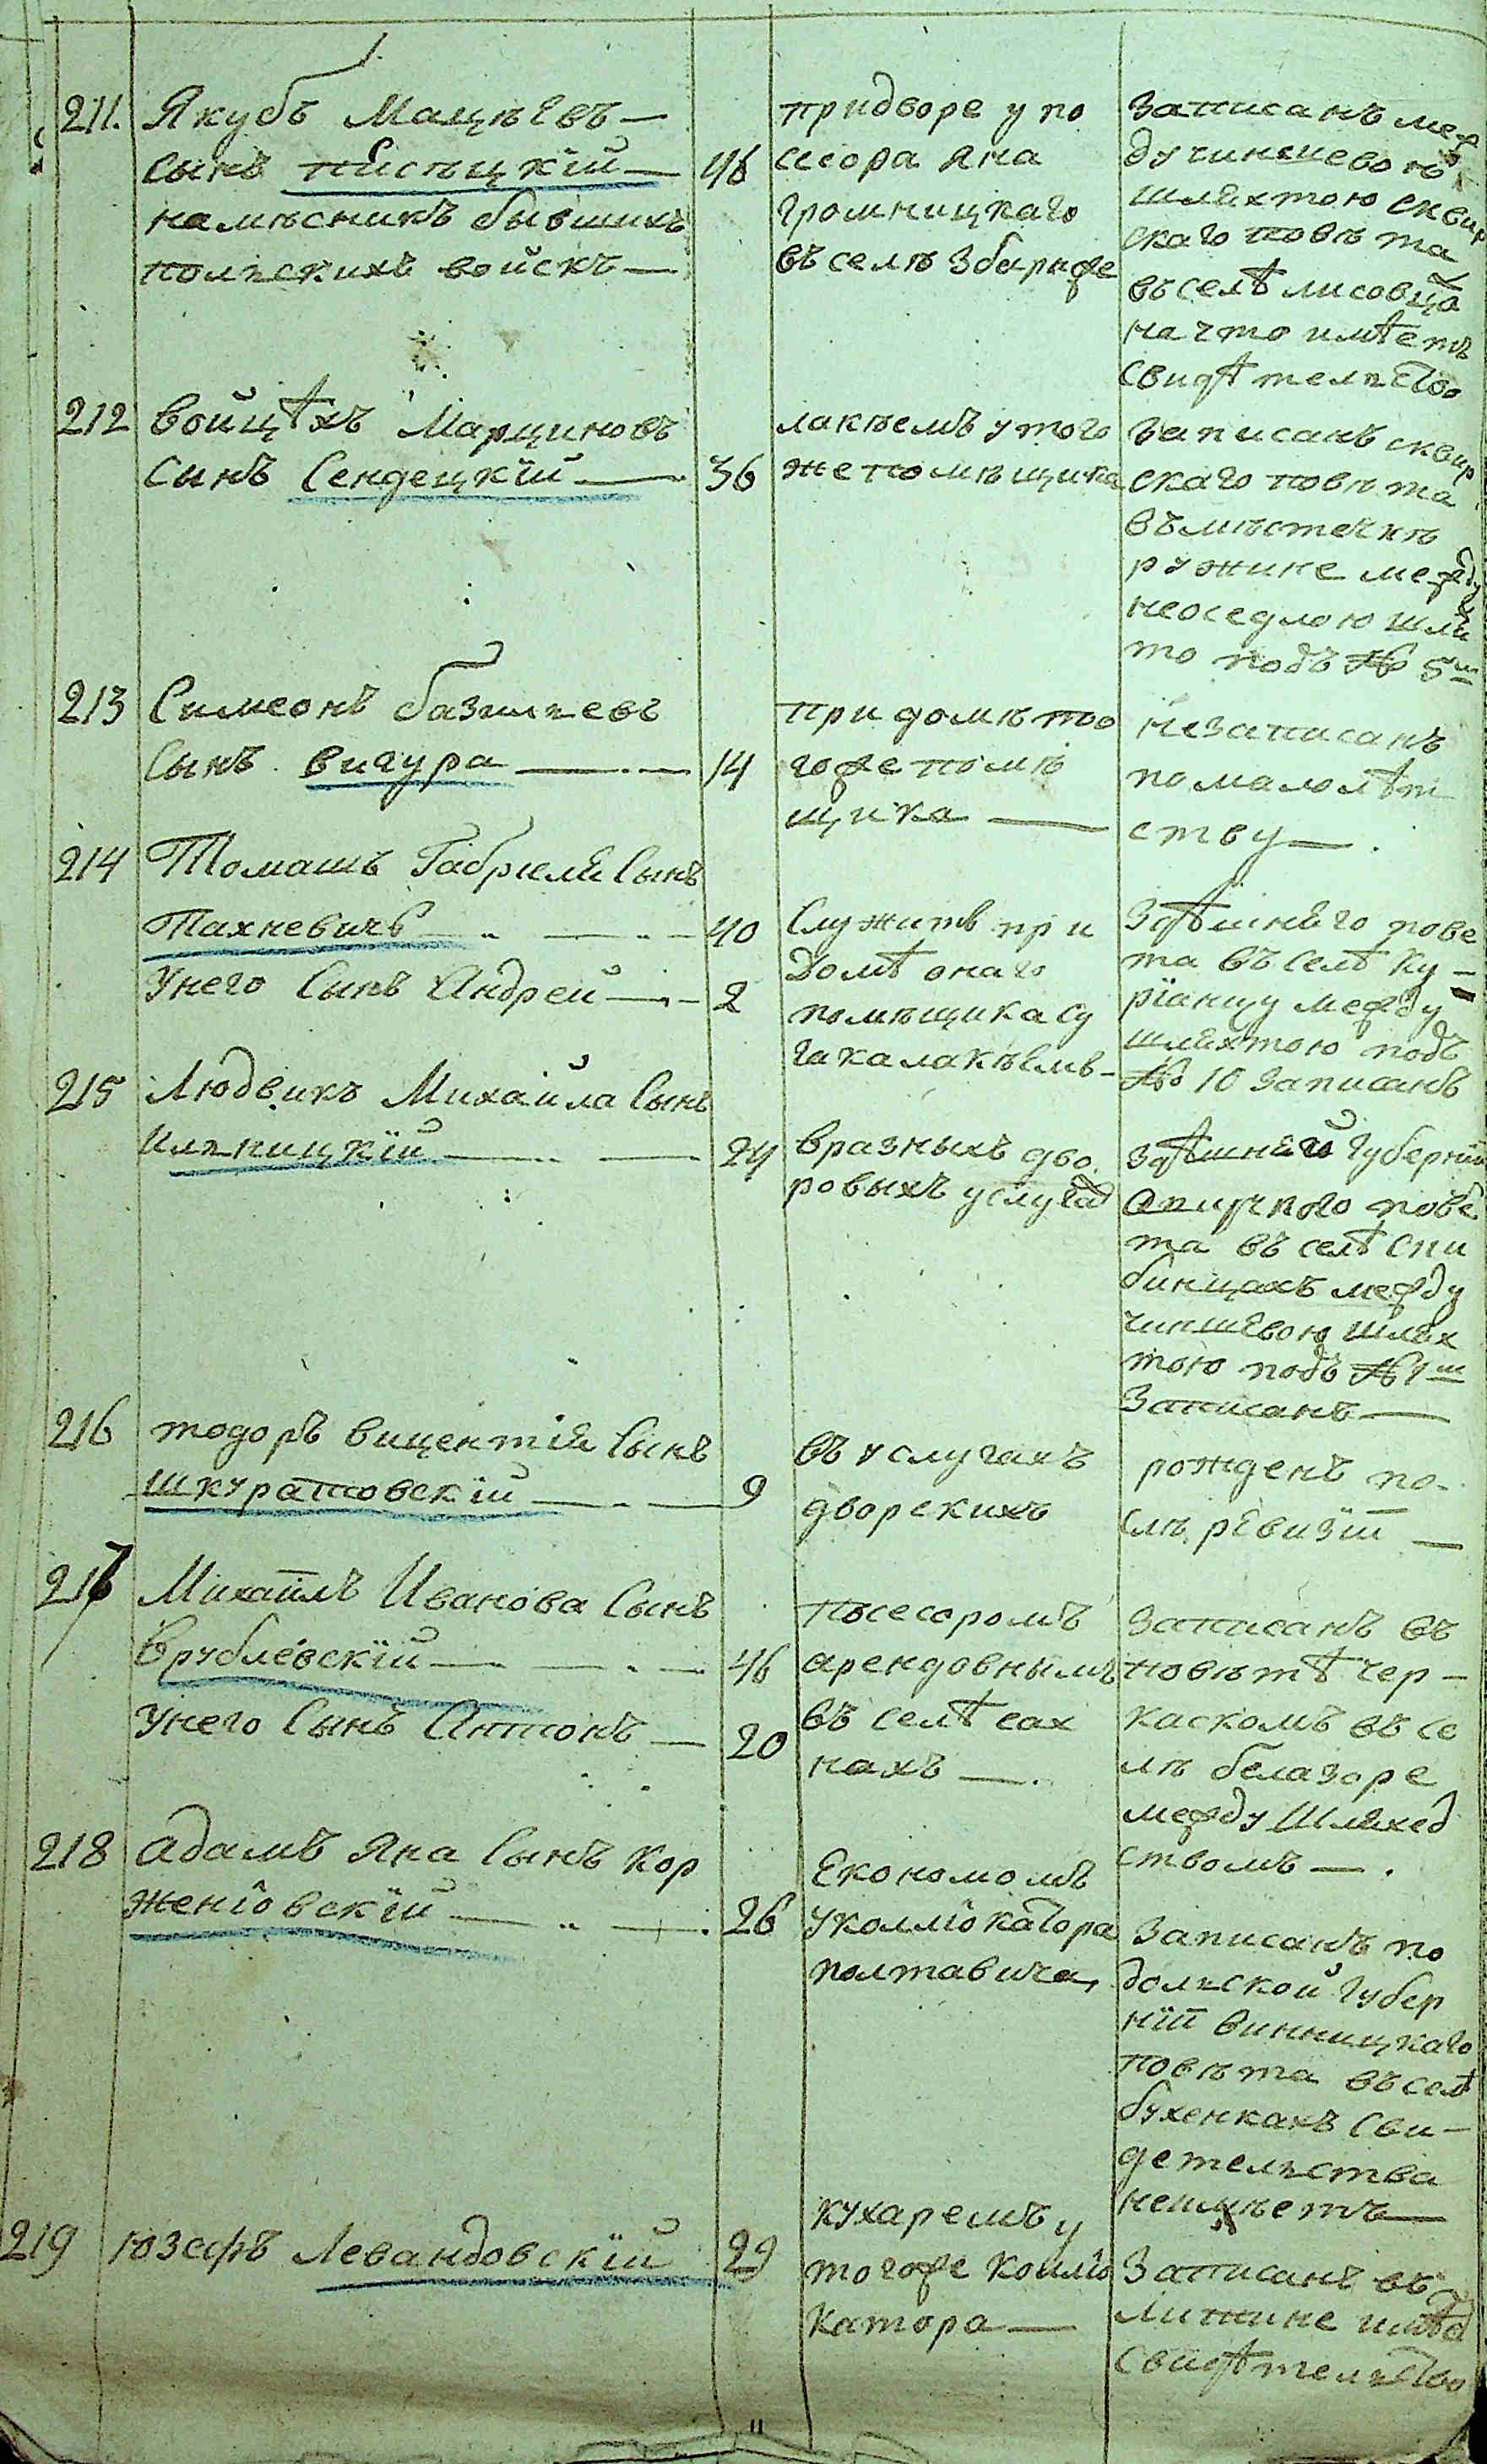 211. Якубъ Мацѣевъ —
сынъ писпецкїй — 46
намѣсникъ бывшихъ
польскихъ войскъ —
придворе у по
сесора яна
громницкаго
въ селѣ Збаржѣ
Записанъ меж
ду чиншевою
шляхтою сквир
скаго повѣта
въ селѣ лисовца
на что имѣетъ
свидѣтельство
212 Войцѣхъ Марциновъ
сынъ Сендецкїй — 36
лакѣемъ утого
же помѣщика
Записанъ сквир
скаго повѣта
въ мѣстечкѣ
ружине между
неоседлою шлях
то подъ № 5м
213 Симеонъ базильевъ
сынъ вигура — 14
при домѣ то
гоже помѣ
щика —
незаписанъ
по малолѣт
ству —.
214 Томашъ Габриеля сынъ
Тахневичъ — 40
унего сынъ Андрей — 2
Служитъ при
домѣ онаго
помѣщика
лакѣемъ —
Здѣшняго пове
та въ селѣ Ку —
рїанцу между
шляхтою подъ
№ 10 записанъ
215 Людвикъ Михайла сынъ
Ильницкїй — 24
вразныхъ дво
ровыхъ услугах
здѣшней губернїи
повѣ
та въ селѣ
бинцахъ между
чиншевою шлях
тою подъ № 4м
Записанъ —
216 тодоръ вицентия сынъ
шкуратовскїй — 9
въ услугахъ
дворскихъ
рожденъ по-
слѣ ревизїи —
217 Михаилъ Иванова сынъ
Врублевскїй — 46
Унего сынъ Антонъ — 20
посесоромъ
арендовнымъ
въ селѣ сах
нахъ —.
Записанъ въ
повѣтѣ чер —
каскомъ въ се
лѣ белазоре
между шляхед
ствомъ —.
218 адамъ яна сынъ кор
женїовскїй — 26
Економомъ
у коллїокатора
полтавича,
Записанъ по
дольской губер
нїи винницкаго
повѣта въ селѣ
бухенкахъ сви —
детельства
неимѣетъ —
219 юзефъ Левандовскїй 29
кухаремъ у
тогоже коллїо
катора —
Записанъ въ
литине имѣе
свидѣтельство